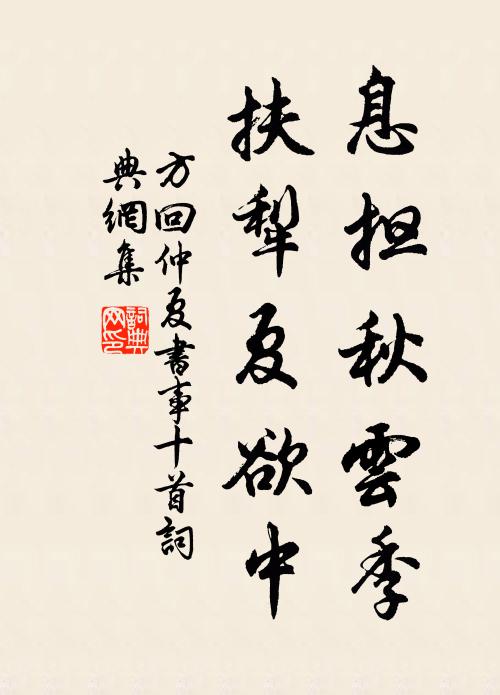 息担秋雲季
扶犁夏欲中
方回仲夏書事十首詞
典網集
詞典
网印